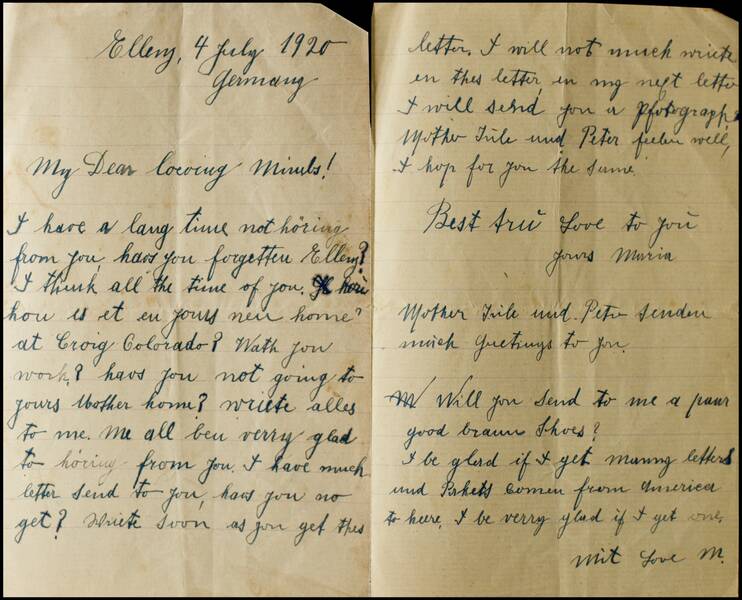 Ellenz, 4 July 1920
Germany
My Dear lowing Minels!
I have a lang time not höring
from you, haws you forgetten Ellenz?
I think all the time of you.
hou is et en yours neu home?
at Croig Colorado? Wath you
work? haws you not going to
yours Mother home? wriete alles
to me. Me all ben verry glad
to höring from you. I have much
letter send to you, haws you no
get? Wriete soon as you get thes
letter. I will not much wriete
en thes letter, en my next letter
I will send you a Pfotograph
Mother Jule und Peter feelen well,
I hop for you the same.
Best trü Love to you
yours Maria
Mother Jule und Peter senden
much greetings to you.
Will you send to me a paar
good braun Shoes?
I be glad if I get manny letters
und Pakets comen from America
to heere, I be verry glad if I get one,
Mit Love M.